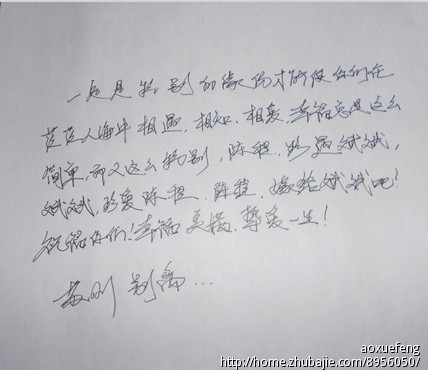 一定是特别的缘份才能使你们在
茫茫人海中相遇.相知.相爱.幸福总是这么
简单,而又这么特别,陈程,珍惜斌斌,
斌斌,珍爱陈程.陈程.嫁给斌斌吧!
祝福你们!幸福美满.挚爱一生!
别离...
aoxuefeng
http://home.zhubajie.com/8956050/